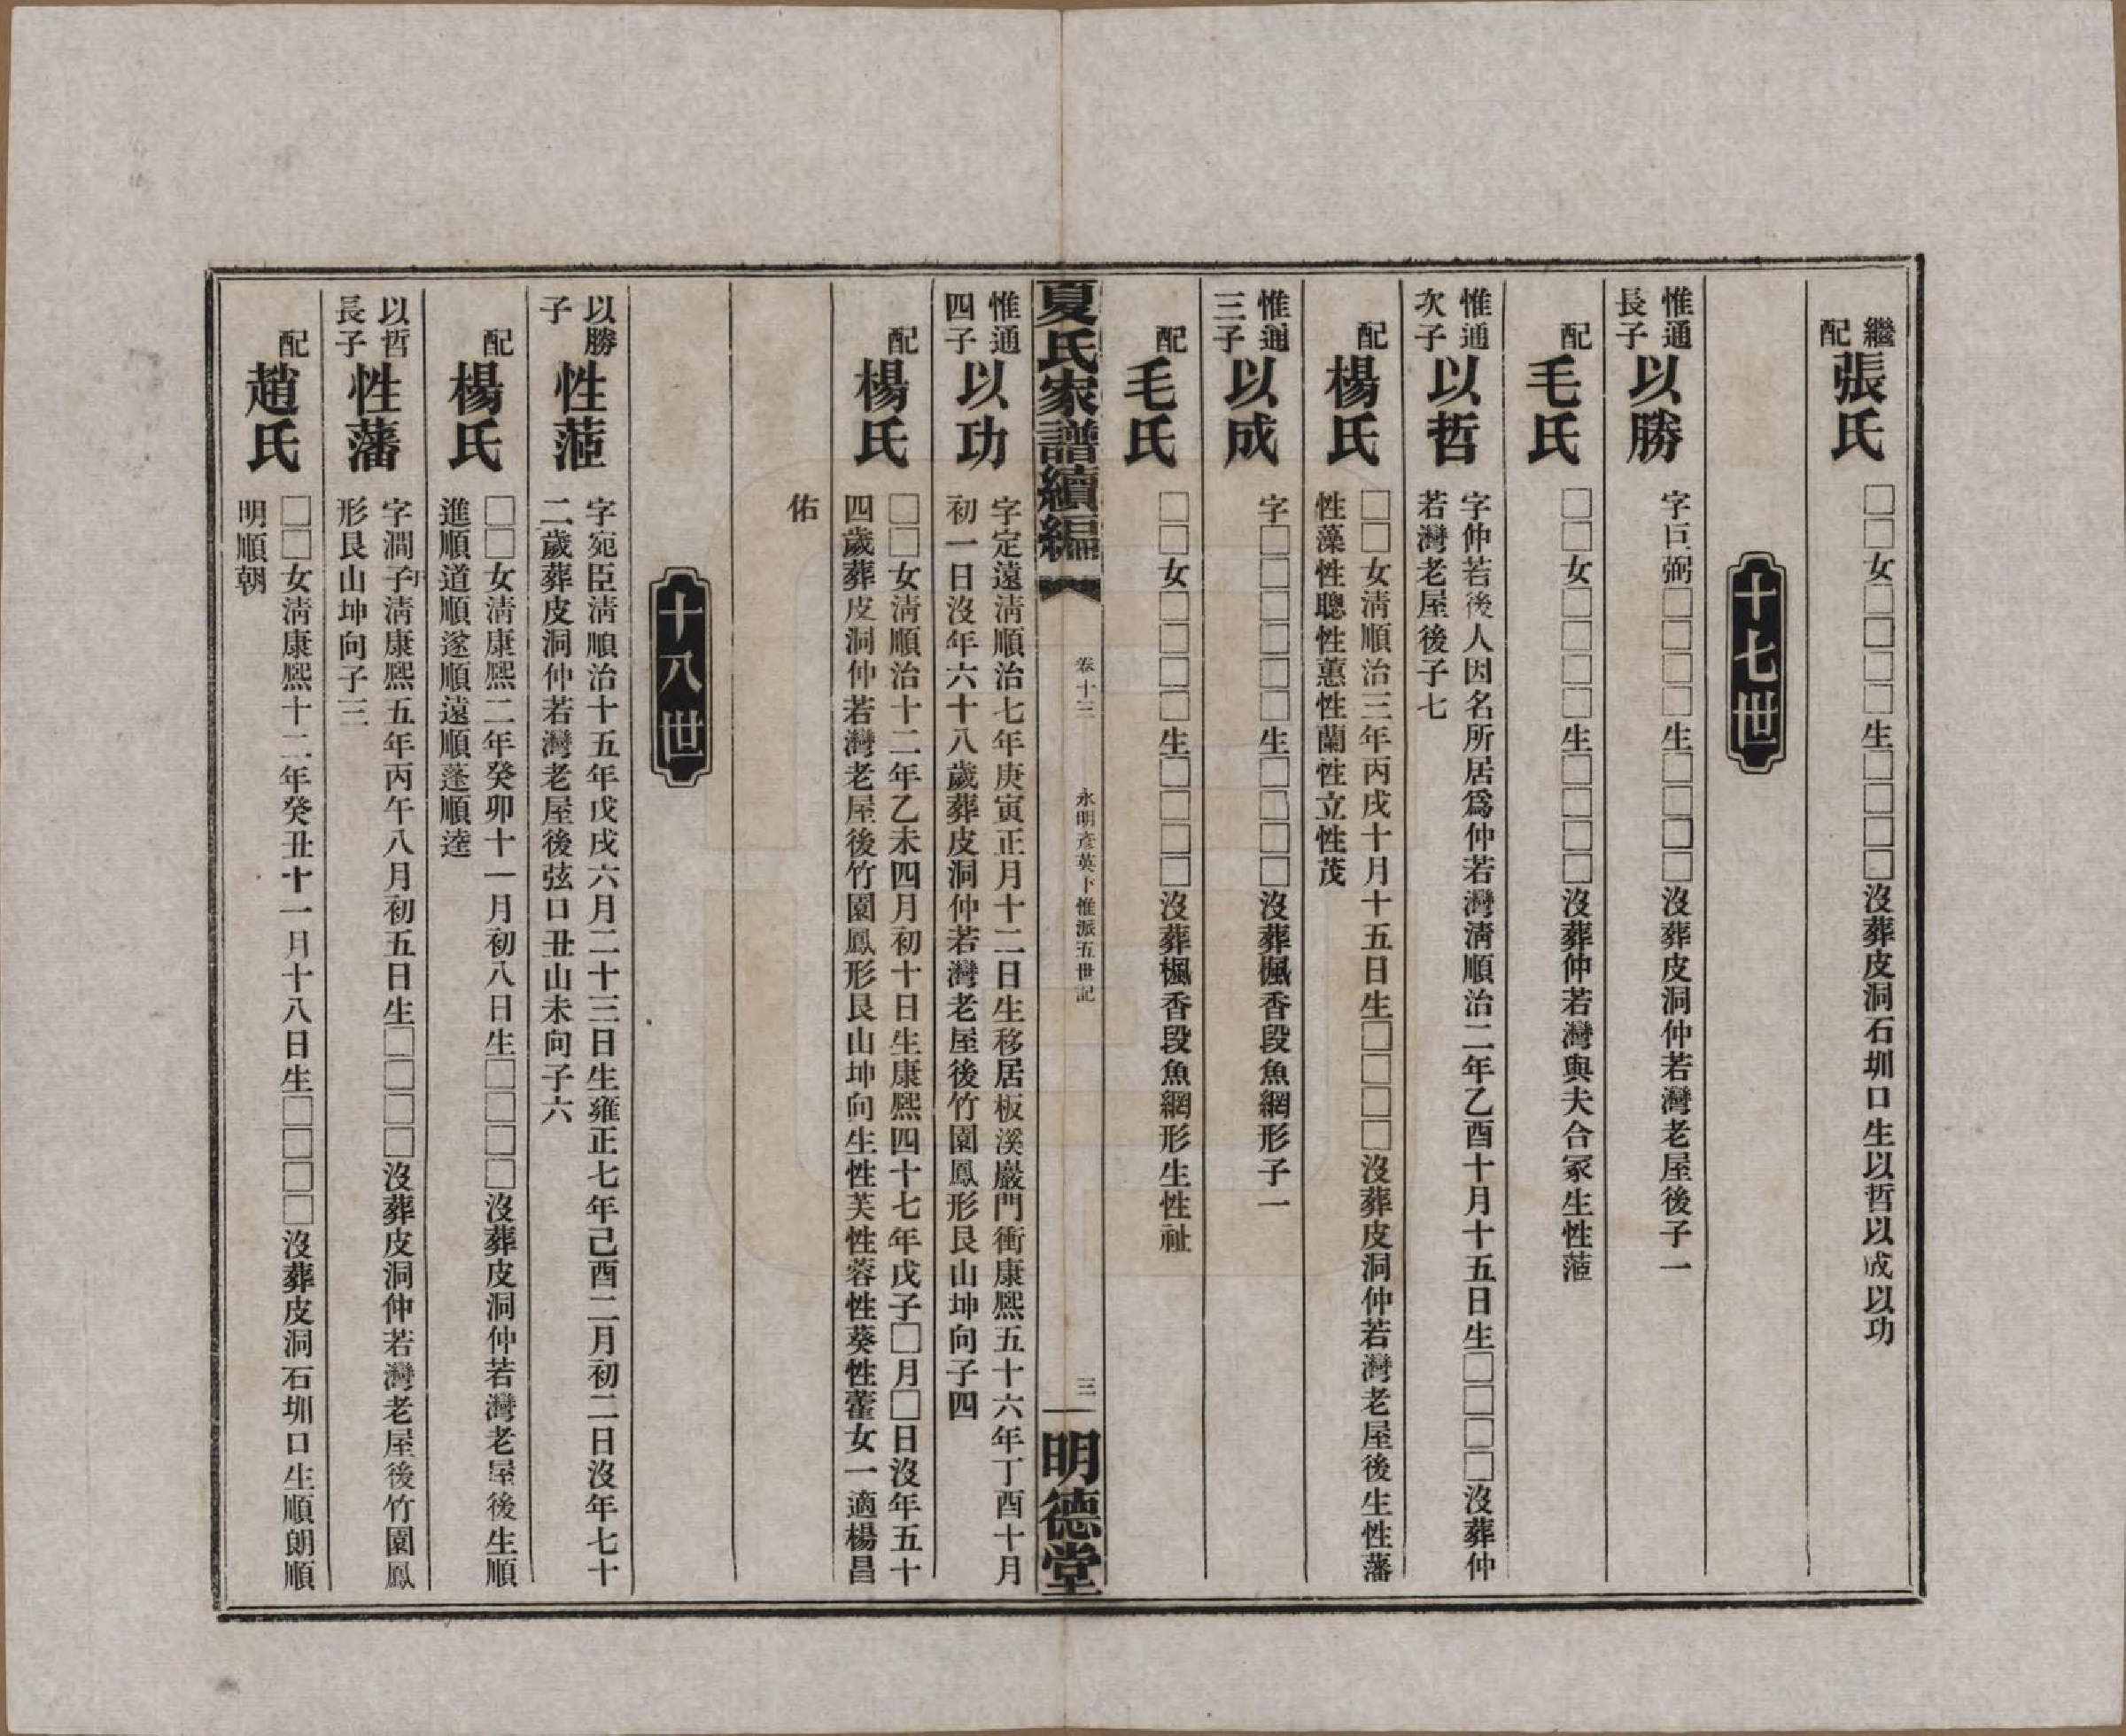 繼配張氏
□□女□□□□生□□□□沒葬皮洞石圳口生以哲以成以功
十七世
惟通長子以勝
字巨弼□□□□生□□□□沒葬皮洞仲若灣老屋後子一
配毛氏
□□女□□□□生□□□□沒葬仲若灣與夫合冢生性蒞
惟通次子以哲
字仲若後人因名所居爲仲若灣淸順治二年乙酉十月十五日生□□□□沒葬仲
若灣老屋後子七
配楊氏
□□女淸順治三年丙戌十月十五日生□□□□沒葬皮洞仲若灣老屋後生性藩
性藻性聰性蕙性蘭性立性茂
惟通三子以成
字□□□□□□生□□□□沒葬楓香段魚網形子一
配毛氏
□□女□□□□生□□□□沒葬楓香段魚網形生性祉
夏氏家譜續編
卷十三
永明彥英下惟派五世記
三
明德堂
惟通四子以功
字定遠淸順治七年庚寅正月十二日生移居板溪巖門衝康熙五十六年丁酉十月
初一日沒年六十八歲葬皮洞仲若灣老屋後竹園鳳形艮山坤向子四
配楊氏
□□女淸順治十二年乙未四月初十日生康熙四十七年戊子□月□日沒年五十
四歲葬皮洞仲若灣老屋後竹園鳳形艮山坤向生性芙性蓉性葵性藿女一適楊昌
佑
十八世
以勝子性蒞
字宛臣淸順治十五年戊戌六月二十三日生雍正七年己酉二月初二日沒年七十
二歲葬皮洞仲若灣老屋後弦口丑山未向子六
配楊氏
□□女淸康熙二年癸卯十一月初八日生□□□□沒葬皮洞仲若灣老屋後生順
進順道順遂順遠順蓬順逵
以哲長子性藩
字澗子淸康熙五年丙午八月初五日生□□□□沒葬皮洞仲若灣老屋後竹園鳳
形艮山坤向子三
配趙氏
□□女淸康熙十二年癸丑十一月十八日生□□□□沒葬皮洞石圳口生順朗順
明順朝